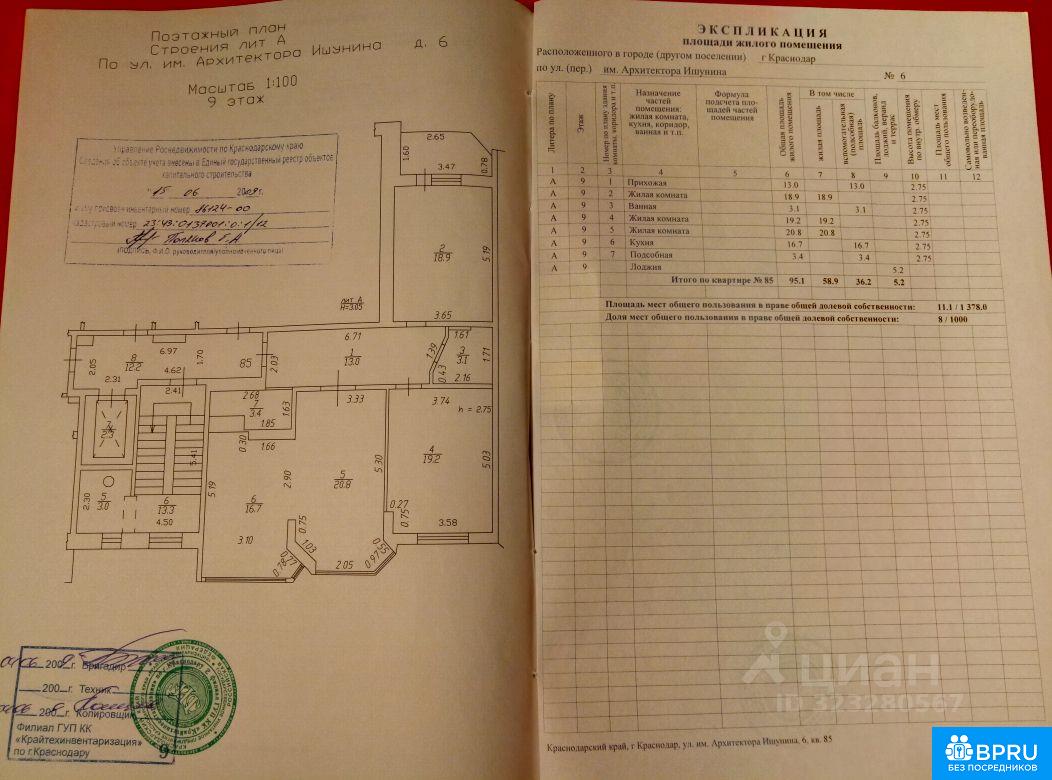 Поэтажный план
Строения лит А
По ул. им. Архитектора Ишунина д. 6
Масштаб 1:100
9 этаж
Управление Роснедвижимости по Краснодарскому краю
Сведения об объекте учета внесены в Единый государственный реестр объектов
капитального строительства
"15 06 2009г.
инвентарный номер 86124-00
кадастровый номер
(подпись, Ф.И.О. руководителя/уполномоченного лица)
2.65
1.60
3.47
0.78
2
18.9
5.19
3.65
лит А
H=3.05
6.71
1
13.0
2.03
1.67
3
3.1
1.39
1.71
0.43
2.16
8
12.2
6.97
1.70
85
2.05
2.31
4.62
2.41
7
2.3
5.41
5
3.0
2.30
6
13.3
4.50
2.68
7
3.4
1.63
1.85
0.30
1.66
3.33
3.74
h = 2.75
4
19.2
5.03
5.30
5
20.8
2.90
5.19
6
16.7
3.10
0.75
1.03
0.77
0.78
2.05
0.97
0.55
0.27
0.75
3.58
200 г. Бригадир
200 г. Техник
200 г. Копировщик
Филиал ГУП КК
«Крайтехинвентаризация»
по г.Краснодару
9
ЭКСПЛИКАЦИЯ
площади жилого помещения
Расположенного в городе (другом поселении) г Краснодар
по ул. (пер.) им. Архитектора Ишунина № 6
Литера по плану
Этаж
Номер по плану здания комнаты, коридора и т.п.
Назначение частей помещения: жилая комната, кухня, коридор, ванная и т.п.
Формула подсчета площадей частей помещения
Общая площадь жилого помещения
В том числе
жилая площадь
вспомогательная (подсобная) площадь
Площадь балконов, лоджий, веранд и террас
Высота помещения по внутр. обмеру
Площадь мест общего пользования
Самовольно возведенная или переоборудованная площадь
1 2 3 4 5 6 7 8 9 10 11 12
А 9 1 Прихожая 13.0 13.0 2.75
А 9 2 Жилая комната 18.9 18.9 2.75
А 9 3 Ванная 3.1 3.1 2.75
А 9 4 Жилая комната 19.2 19.2 2.75
А 9 5 Жилая комната 20.8 20.8 2.75
А 9 6 Кухня 16.7 16.7 2.75
А 9 7 Подсобная 3.4 3.4 2.75
А 9 Лоджия 5.2
Итого по квартире № 85 95.1 58.9 36.2 5.2
Площадь мест общего пользования в праве общей долевой собственности: 11.1 / 1 378.0
Доля мест общего пользования в праве общей долевой собственности: 8 / 1000
циан
ID 323280567
Краснодарский край, г Краснодар, ул. им. Архитектора Ишунина, 6, кв. 85
BPRU
БЕЗ ПОСРЕДНИКОВ